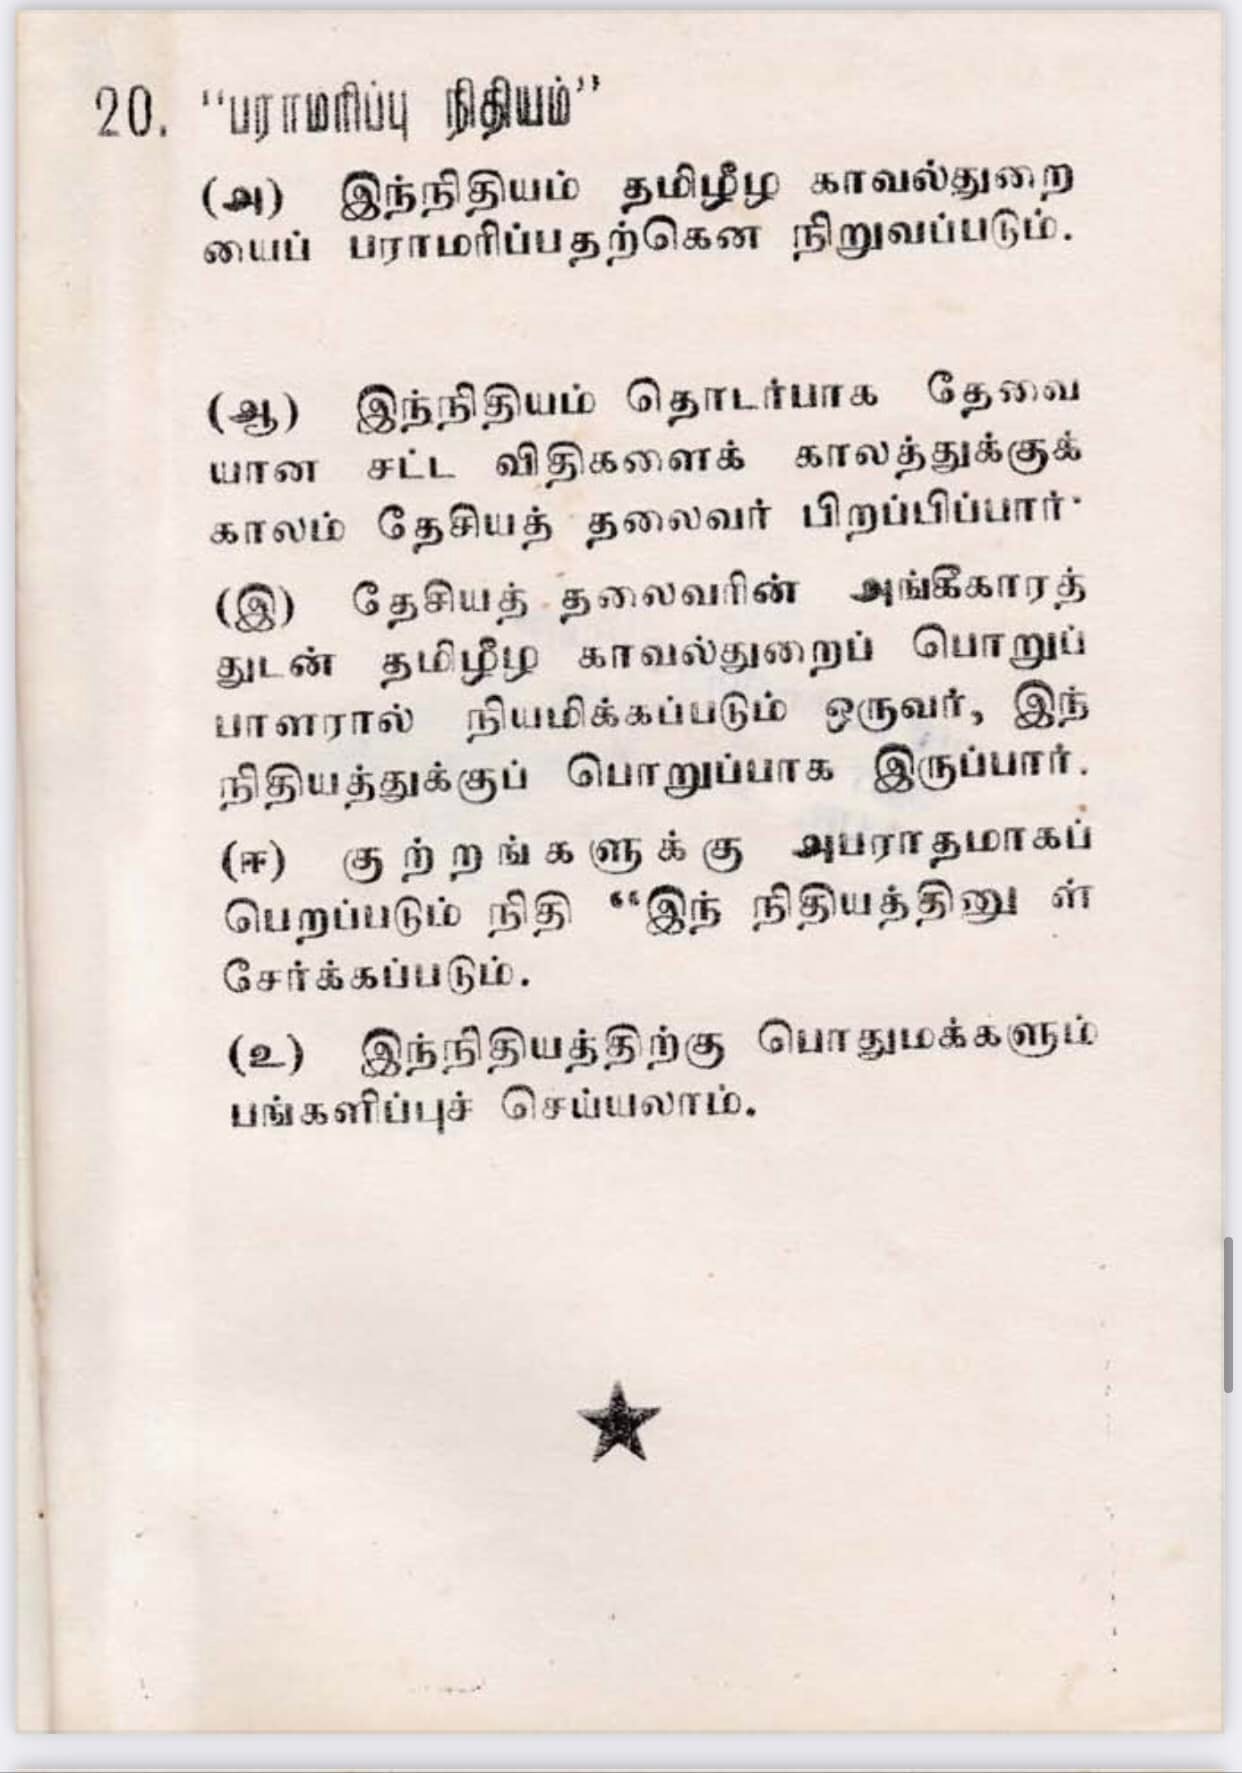 20. "பராமரிப்பு நிதியம்"
(அ) இந்நிதியம் தமிழீழ காவல்துறை
யைப் பராமரிப்பதற்கென நிறுவப்படும்.
(ஆ) இந்நிதியம் தொடர்பாக தேவை
யான சட்ட விதிகளைக் காலத்துக்குக்
காலம் தேசியத் தலைவர் பிறப்பிப்பார்.
(இ) தேசியத் தலைவரின் அங்கீகாரத்
துடன் தமிழீழ காவல்துறைப் பொறுப்
பாளரால் நியமிக்கப்படும் ஒருவர், இந்
நிதியத்துக்குப் பொறுப்பாக இருப்பார்.
(ஈ) குற்றங்களுக்கு அபராதமாகப்
பெறப்படும் நிதி "இந் நிதியத்தினு ள்
சேர்க்கப்படும்.
(உ) இந்நிதியத்திற்கு பொதுமக்களும்
பங்களிப்புச் செய்யலாம்.